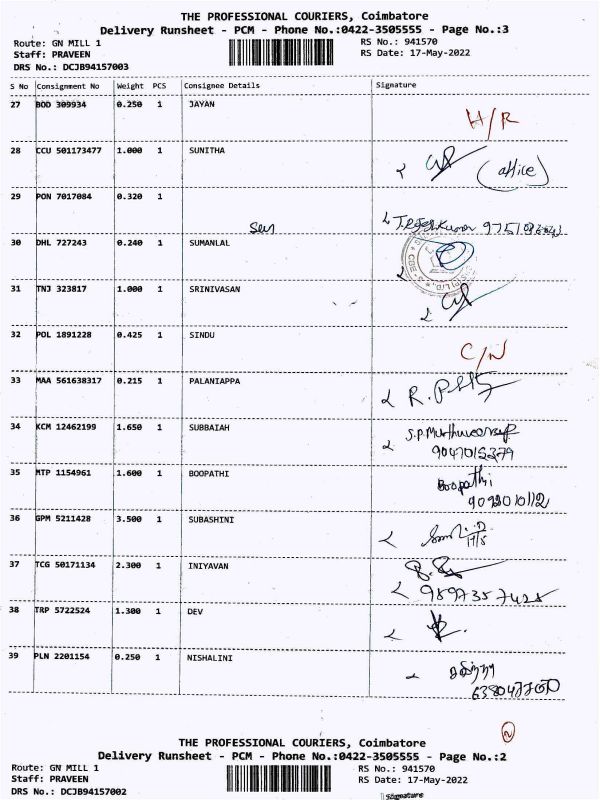 THE PROFESSIONAL COURIERS, Coimbatore
Delivery Runsheet - PCM - Phone No.:0422-3505555 - Page No.:3
Route: GN MILL 1
RS No.: 941570
Staff: PRAVEEN
RS Date: 17-May-2022
DRS No.: DCJB94157003
S No Consignment No Weight PCS Consignee Details Signature
27 BOD 309934 0.250 1 JAYAN H/R
28 CCU 501173477 1.000 1 SUNITHA (office)
29 PON 7017084 0.320 1
30 DHL 727243 0.240 1 SUMANLAL
31 TNJ 323817 1.000 1 SRINIVASAN
32 POL 1891228 0.425 1 SINDU C/N
33 MAA 561638317 0.215 1 PALANIAPPA
34 KCM 12462199 1.650 1 SUBBAIAH
35 MTP 1154961 1.600 1 BOOPATHI Boopathi
36 GPM 5211428 3.500 1 SUBASHINI
37 TCG 50171134 2.300 1 INIYAVAN
38 TRP 5722524 1.300 1 DEV
39 PLN 2201154 0.250 1 NISHALINI
2
THE PROFESSIONAL COURIERS, Coimbatore
Delivery Runsheet - PCM - Phone No.:0422-3505555 - Page No.:2
Route: GN MILL 1
RS No.: 941570
Staff: PRAVEEN
RS Date: 17-May-2022
DRS No.: DCJB94157002
Signature